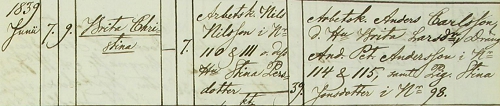 1839
Junii 7. 9. Brita Chri
stina 7.
Arbetsk. Nils
Nilsson i Nº
110 & 111 o. dess
Hu Stina Pers
dotter 39.
Arbetsk. Anders Carlsson
o. Hu Brita Larsdr, Dräng
And. Pet. Andersson i Nº
114 & 115, samt Pig. Stina
Jonsdotter i Nº 98.